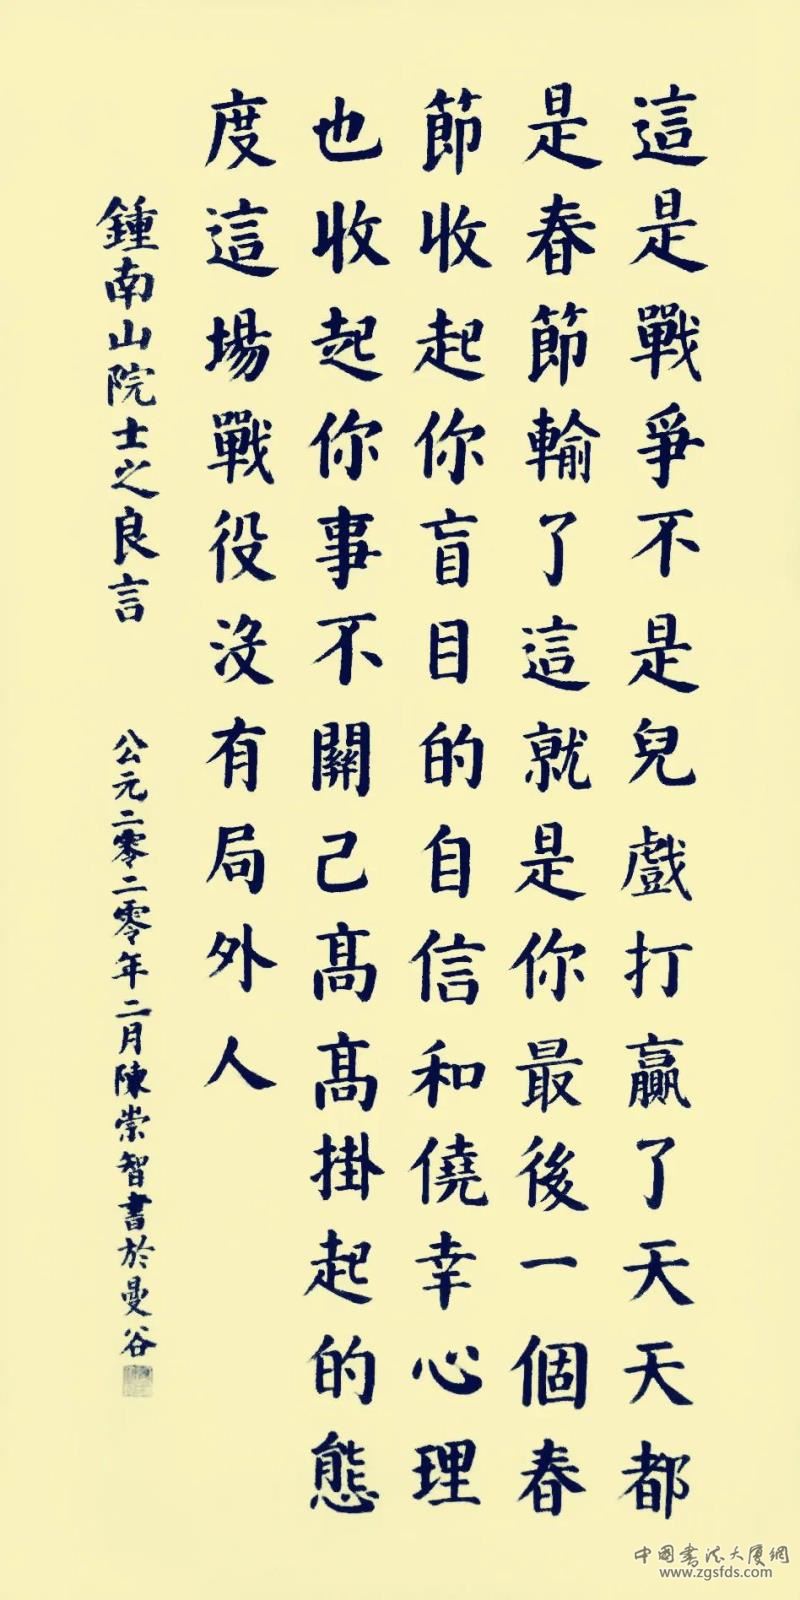 這是戰爭不是兒戲打贏了天天都
是春節輸了這就是你最後一個春
節收起你盲目的自信和僥幸心理
也收起你事不關己高高掛起的態
度這場戰役沒有局外人
鍾南山院士之良言
公元二零二零年二月陳崇智書於曼谷
中國書法大廈網
www.zgsfds.com